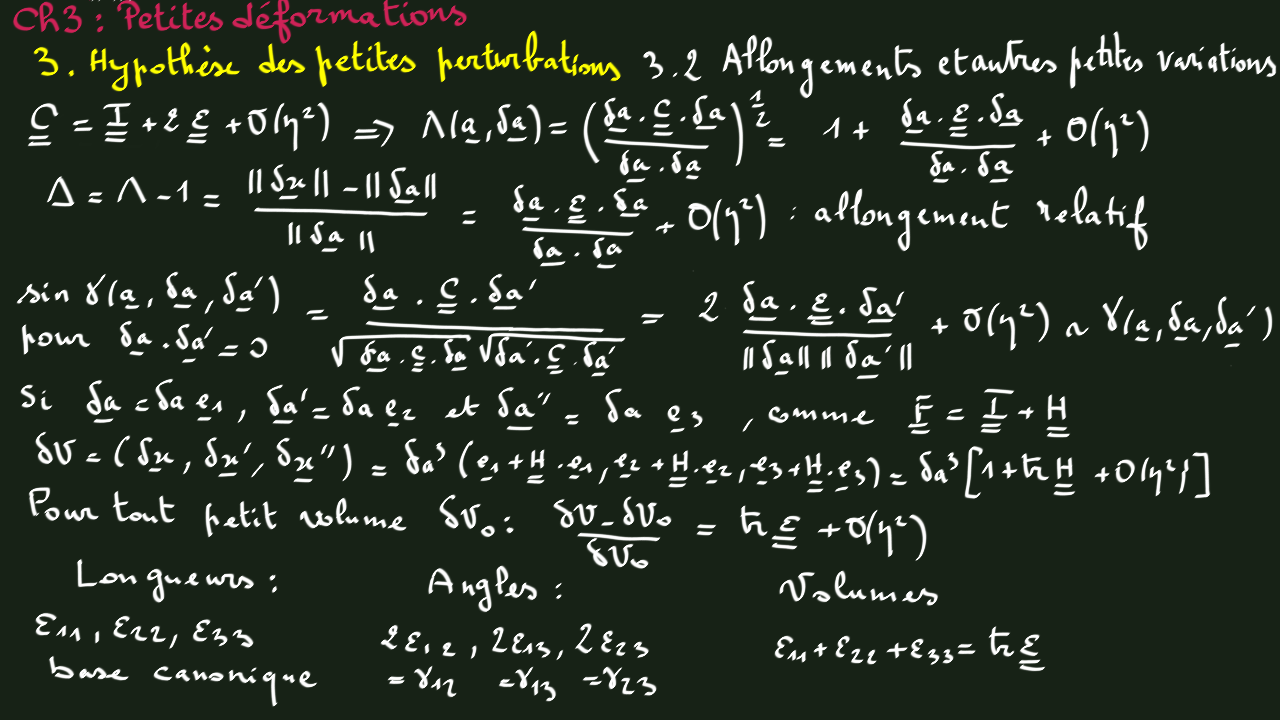 Ch3 : Petites déformations
3. Hypothèse des petites perturbations 3.2 Allongements et autres petites variations
C = I + 2 ε + O(η²) ⇒ Λ(a, δa) = (δa . C . δa / δa . δa)^½ = 1 + δa . ε . δa / δa . δa + O(η²)
Δ = Λ - 1 = (||δx|| - ||δa||) / ||δa|| = δa . ε . δa / δa . δa + O(η²) : allongement relatif
sin γ(a, δa, δa') = δa . C . δa' / √(δa . C . δa) √(δa' . C . δa') = 2 δa . ε . δa' / ||δa|| ||δa'|| + O(η²) ~ γ(a, δa, δa')
pour δa . δa' = 0
Si δa = δa e1, δa' = δa e2 et δa'' = δa e3, comme F = I + H
δv = (δx, δx', δx'') = δa³ (e1 + H . e1, e2 + H . e2, e3 + H . e3) = δa³ [1 + tr H + O(η²)]
Pour tout petit volume δv₀ : (δv - δv₀) / δv₀ = tr ε + O(η²)
Longueurs : Angles : Volumes
ε11, ε22, ε33 2ε12, 2ε13, 2ε23 ε11 + ε22 + ε33 = tr ε
base canonique = γ12 = γ13 = γ23